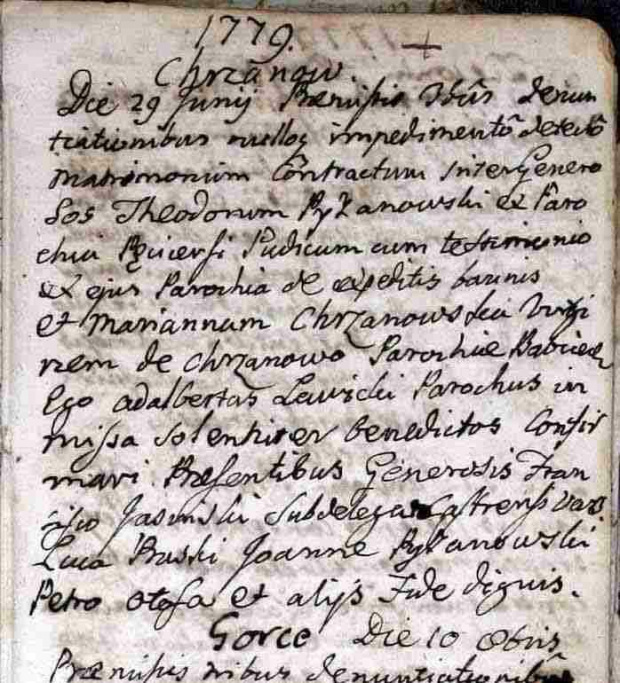 1779.
Chrzanow.
Die 29 Junij Præmissis Tribus denun
tiationibus nulloq impedimento detecto
matrimonium Contractum inter Genero
Sos Theodorum Pyzanowski ex Paro
chia Pudicum cum testimonio
ex ejus Parochia de expeditis bannis
et Mariannam Chrzanowska Virgi
nem de Chrzanowo Parochiæ
Ego adalbertus Lewicki Parochus in
missa solenniter benedictos Confir
mavi Præsentibus Generosis Fran
cisco Jasinski Subdelegat Castrens Vars
Luca Bruski Joanne Pyzanowski
Petro et alijs Fide dignis.
Gorce Die 10 Obris
Præmissis tribus denuntiationibus